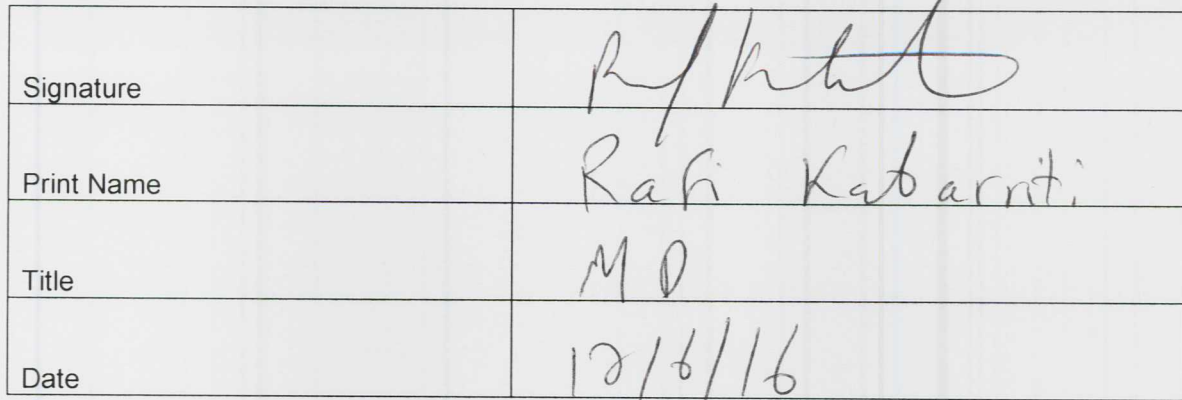 Signature
Print Name Rafi Kabarriti
Title MD
Date 12/6/16